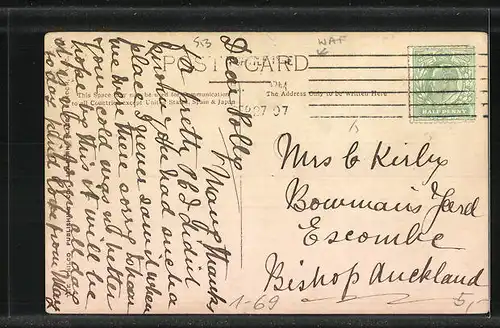 53
WAF
POST CARD
This Space may be used for Communication
to all Countries except United States, Spain & Japan
The Address Only to be Written Here
07
HALFPENNY
Dear Polly
Many Thanks
for pretty P.C. I didnt
know she had such a
place I never saw it when
we were there sorry to hear
your cold was not better
hope by this it will be
all day
to day
from May
Mrs C Kirby
Bowman's Yard
Escombe
Bishop Auckland
1-69
5,-